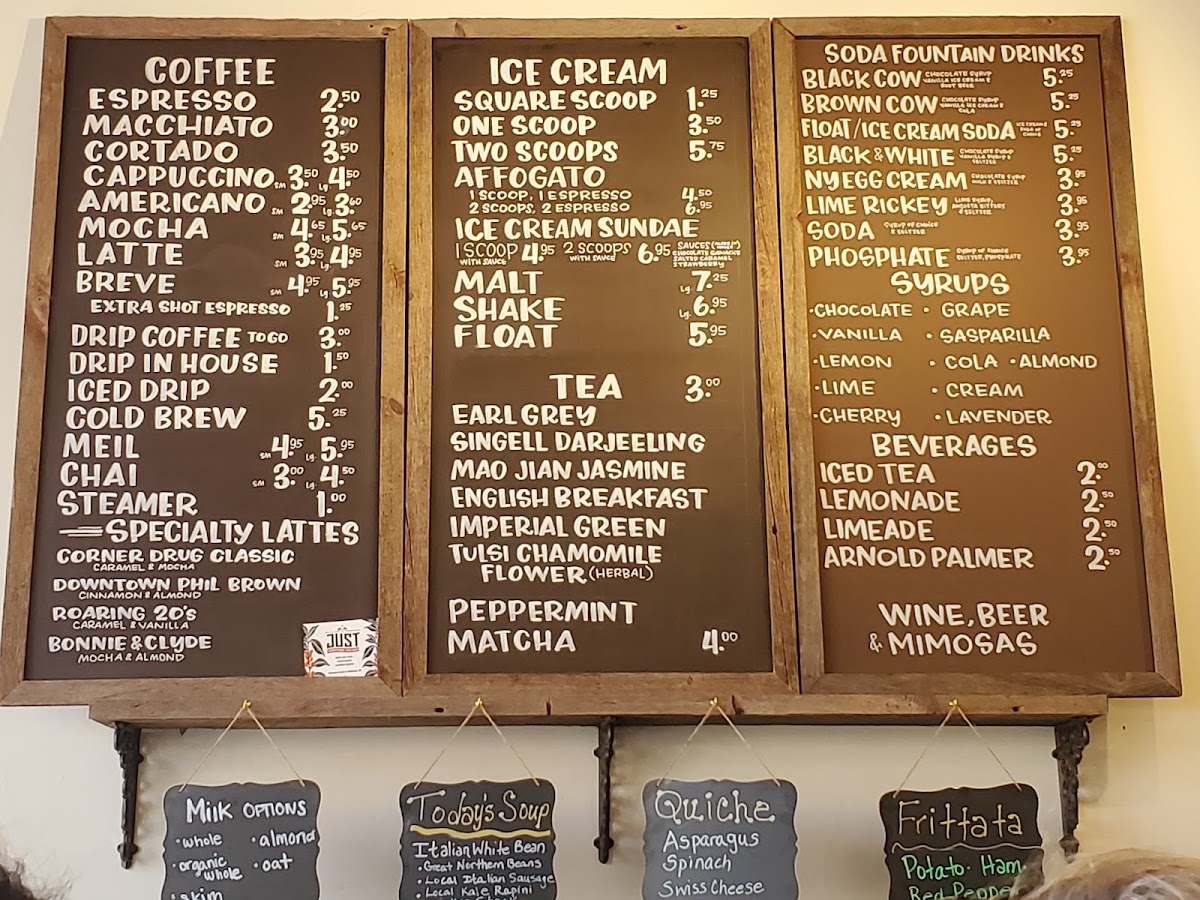 COFFEE
ESPRESSO 2.50
MACCHIATO 3.00
CORTADO 3.50
CAPPUCCINO SM 3.50 Lg. 4.50
AMERICANO SM 2.95 Lg. 3.60
MOCHA SM 4.65 Lg. 5.65
LATTE SM 3.95 Lg. 4.95
BREVE SM 4.95 Lg 5.95
EXTRA SHOT ESPRESSO 1.25
DRIP COFFEE TO GO 3.00
DRIP IN HOUSE 1.50
ICED DRIP 2.00
COLD BREW 5.25
MEIL SM 4.95 Lg. 5.95
CHAI SM 3.00 Lg. 4.50
STEAMER 1.00
SPECIALTY LATTES
CORNER DRUG CLASSIC
CARAMEL & MOCHA
DOWNTOWN PHIL BROWN
CINNAMON & ALMOND
ROARING 20's
CARAMEL & VANILLA
BONNIE & CLYDE
MOCHA & ALMOND
JUST
ICE CREAM
SQUARE SCOOP 1.25
ONE SCOOP 3.50
TWO SCOOPS 5.75
AFFOGATO
1 SCOOP, 1 ESPRESSO 4.50
2 SCOOPS, 2 ESPRESSO 6.95
ICE CREAM SUNDAE
1 SCOOP WITH SAUCE 4.95 2 SCOOPS WITH SAUCE 6.95 SAUCES
CHOCOLATE GANACHE
SALTED CARAMEL
STRAWBERRY
MALT Lg. 7.25
SHAKE Lg. 6.95
FLOAT 5.95
TEA 3.00
EARL GREY
SINGELL DARJEELING
MAO JIAN JASMINE
ENGLISH BREAKFAST
IMPERIAL GREEN
TULSI CHAMOMILE
FLOWER (HERBAL)
PEPPERMINT
MATCHA 4.00
SODA FOUNTAIN DRINKS
BLACK COW CHOCOLATE SYRUP VANILLA ICE CREAM & ROOT BEER 5.25
BROWN COW CHOCOLATE SYRUP VANILLA ICE CREAM & COLA 5.25
FLOAT/ICE CREAM SODA ICE CREAM & SODA OF CHOICE 5.25
BLACK & WHITE CHOCOLATE SYRUP VANILLA SYRUP & SELTZER 5.25
NY EGG CREAM CHOCOLATE SYRUP MILK & SELTZER 3.95
LIME RICKEY LIME SYRUP, ANGOSTA BITTERS & SELTZER 3.95
SODA SYRUP OF CHOICE & SELTZER 3.95
PHOSPHATE SYRUP OF CHOICE SELTZER, PHOSPHATE 3.95
SYRUPS
·CHOCOLATE · GRAPE
·VANILLA · SASPARILLA
·LEMON · COLA ·ALMOND
·LIME · CREAM
·CHERRY · LAVENDER
BEVERAGES
ICED TEA 2.00
LEMONADE 2.50
LIMEADE 2.50
ARNOLD PALMER 2.50
WINE, BEER
& MIMOSAS
Milk OPTIONS
·whole ·almond
·organic whole ·oat
·skim
Today's Soup
Italian White Bean
· Great Northern Beans
· Local Italian Sausage
· Local Kale Rapini
Quiche
Asparagus
Spinach
Swiss Cheese
Frittata
Potato· Ham
Red Pepper